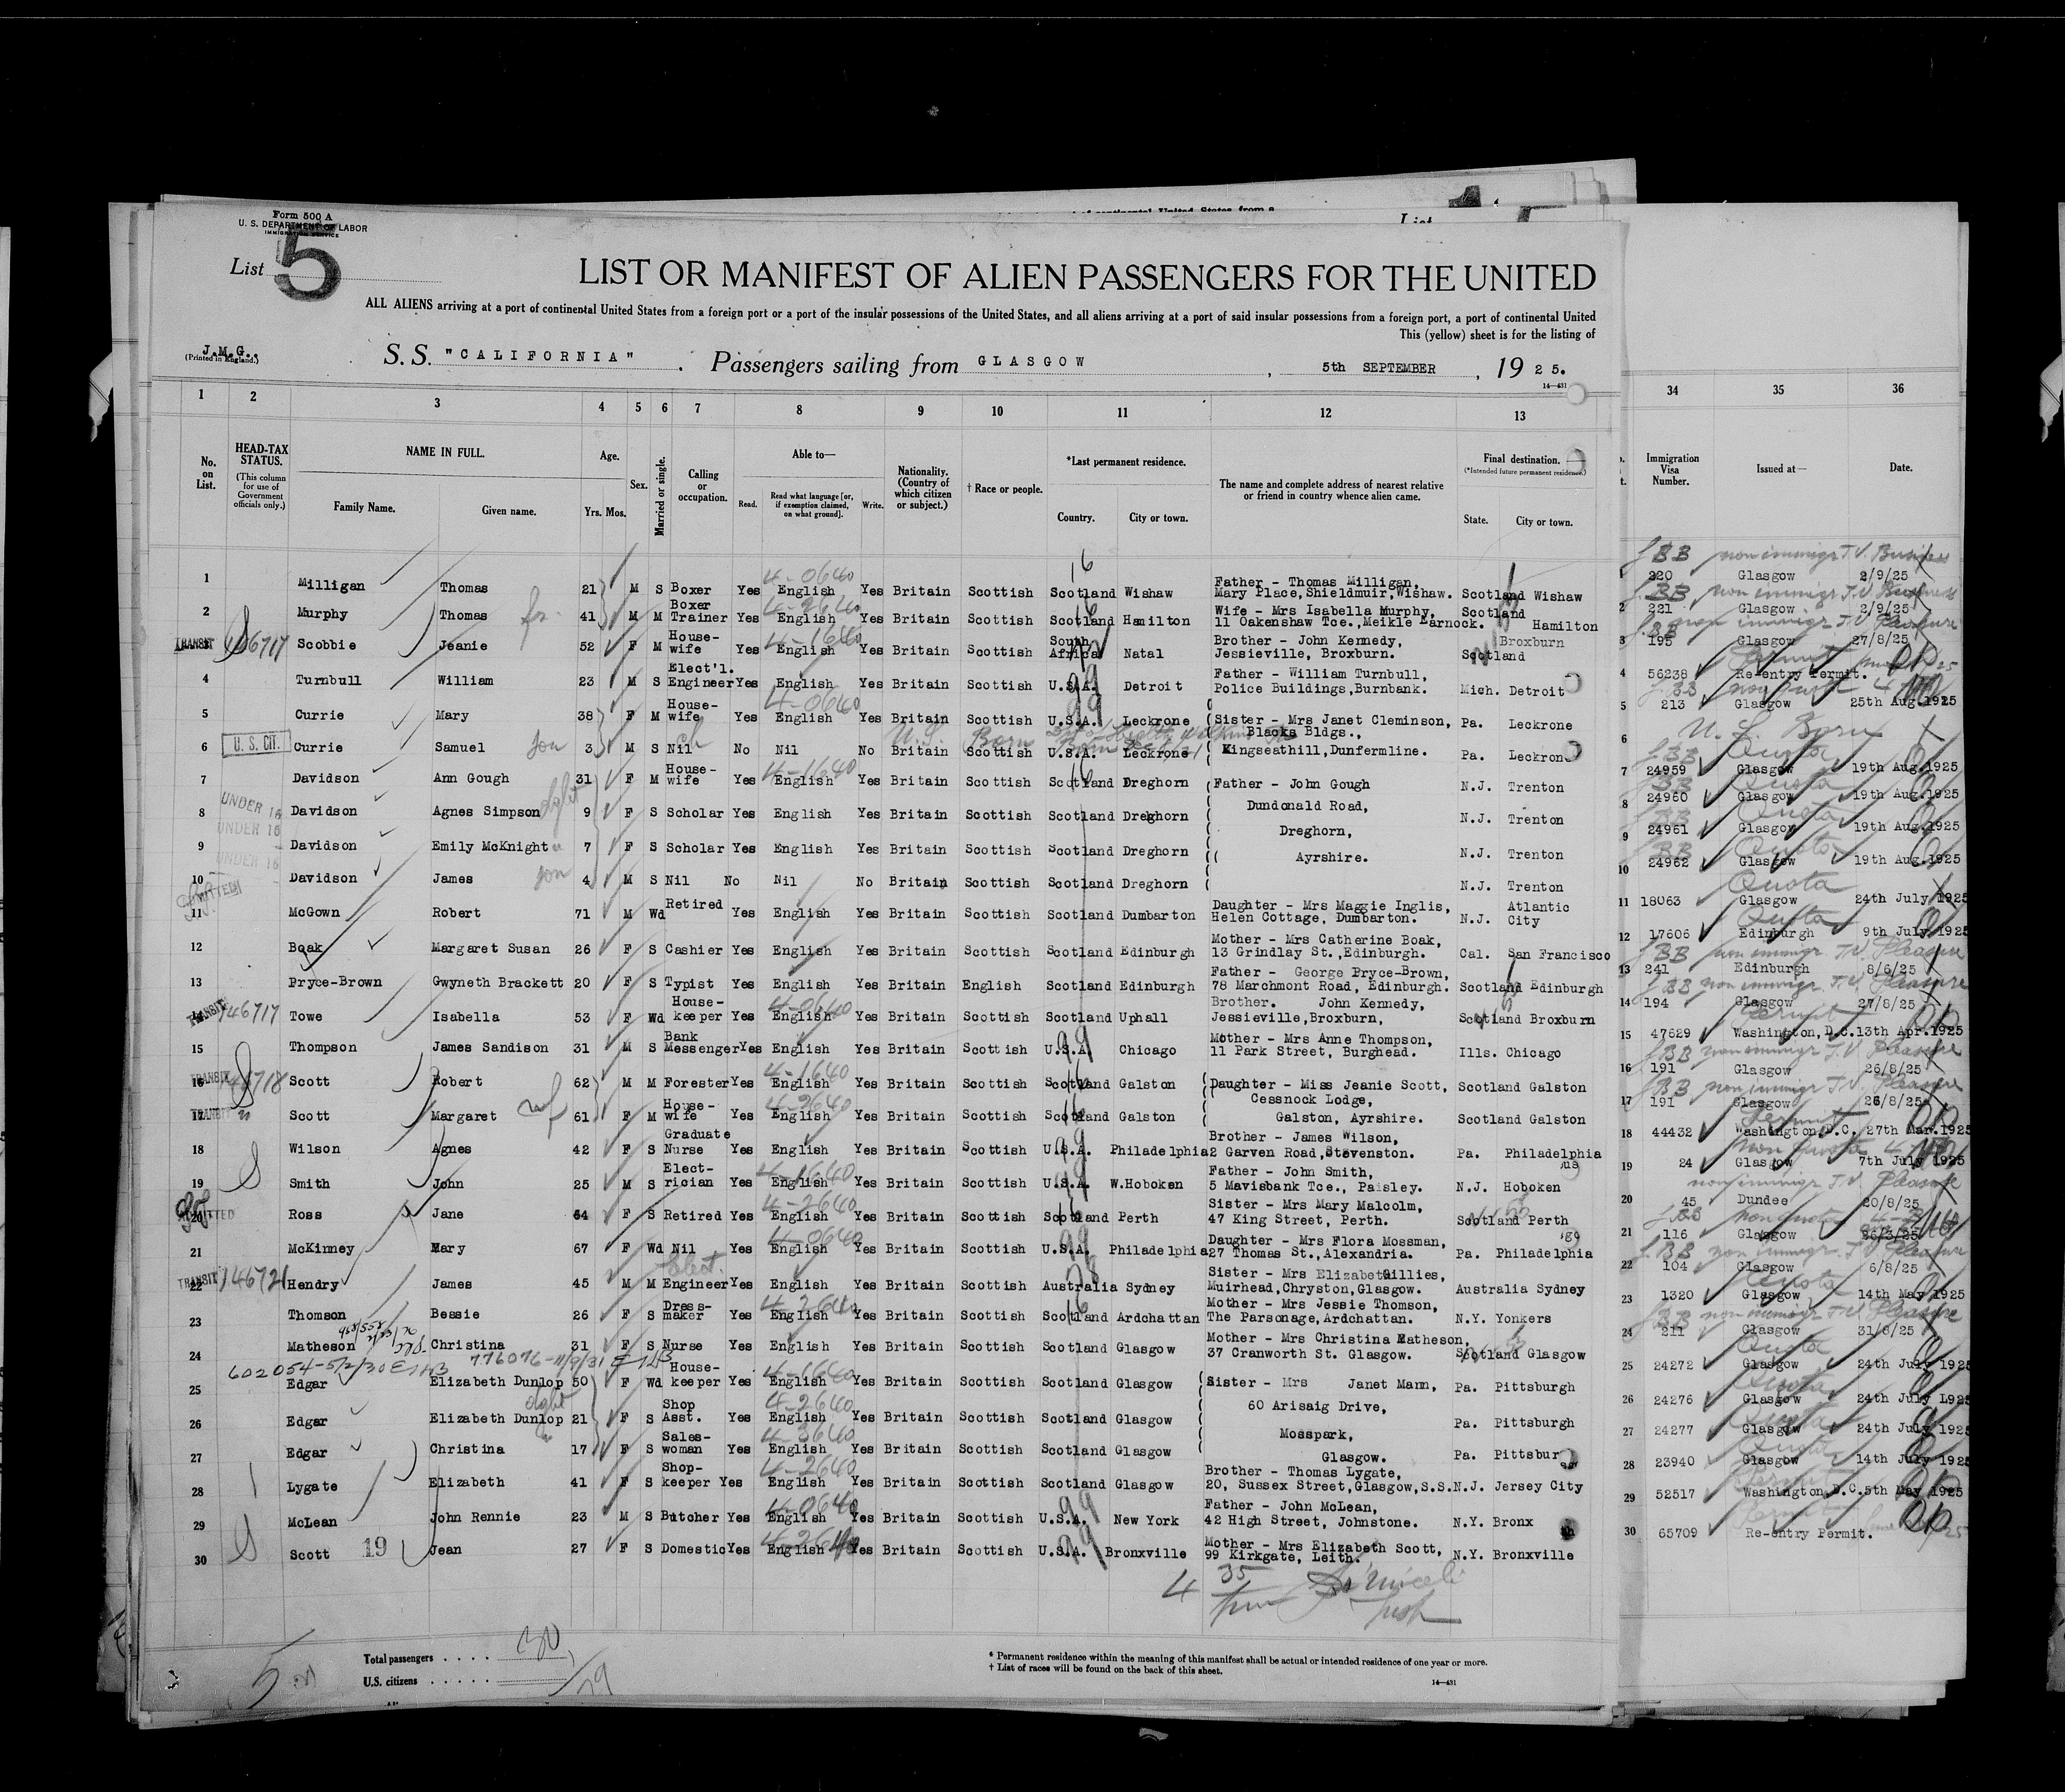 Form 500 A
U. S. DEPARTMENT OF LABOR
IMMIGRATION SERVICE
List 5
LIST OR MANIFEST OF ALIEN PASSENGERS FOR THE UNITED
ALL ALIENS arriving at a port of continental United States from a foreign port or a port of the insular possessions of the United States, and all aliens arriving at a port of said insular possessions from a foreign port, a port of continental United
This (yellow) sheet is for the listing of
J.M.G.
(Printed in England.)
S. S. "CALIFORNIA" . Passengers sailing from GLASGOW , 5th SEPTEMBER , 19 25.
14—431
1 2 3 4 5 6 7 8 9 10 11 12 13 34 35 36
No. on List. HEAD-TAX STATUS. (This column for use of Government officials only.) NAME IN FULL. Family Name. Given name. Age. Yrs. Mos. Sex. Married or single. Calling or occupation. Able to— Read. Read what language [or, if exemption claimed, on what ground]. Write. Nationality. (Country of which citizen or subject.) † Race or people. *Last permanent residence. Country. City or town. The name and complete address of nearest relative or friend in country whence alien came. Final destination. (*Intended future permanent residence.) State. City or town. Immigration Visa Number. Issued at— Date.
1 Milligan Thomas 21 M S Boxer Yes English 4-0640 Yes Britain Scottish Scotland 16 Wishaw Father - Thomas Milligan, Mary Place,Shieldmuir,Wishaw. Scotland Wishaw 1 220 Glasgow 2/9/25 BB non immigr T.V. Business
2 Murphy Thomas 41 M M Boxer Trainer Yes English 4-2640 Yes Britain Scottish Scotland 16 Hamilton Wife - Mrs Isabella Murphy, 11 Oakenshaw Tce.,Meikle Earnock. Scotland Hamilton 2 221 Glasgow 2/9/25 BB non immigr T.V. Business
3 TRANSIT 146717 Scobbie Jeanie 52 F M House-wife Yes English 4-1640 Yes Britain Scottish South Africa Natal Brother - John Kennedy, Jessieville, Broxburn. Scotland Broxburn 3 195 Glasgow 27/8/25 BB non immigr T.V. Pleasure
4 Turnbull William 23 M S Elect'l. Engineer Yes English Yes Britain Scottish U.S.A. 99 Detroit Father - William Turnbull, Police Buildings,Burnbank. Mich. Detroit 4 56238 Re-entry Permit. Permit
5 Currie Mary 38 F M House-wife Yes English 4-0640 Yes Britain Scottish U.S.A. 99 Leckrone (Sister - Mrs Janet Cleminson, Pa. Leckrone 5 213 Glasgow 25th Aug.1925 BB non quota
6 U. S. CIT. Currie Samuel son 3 M S Nil ch No Nil No Britain Scottish U.S. Born U.S.A. Leckrone Blacks Bldgs., Kingseathill,Dunfermline. Pa. Leckrone 6 U. S. Born
7 Davidson Ann Gough 31 F M House-wife Yes English 4-1640 Yes Britain Scottish Scotland Dreghorn (Father - John Gough N.J. Trenton 7 24959 Glasgow 19th Aug.1925 BB Quota
8 UNDER 16 Davidson Agnes Simpson dght 9 F S Scholar Yes English Yes Britain Scottish Scotland Dreghorn Dundonald Road, N.J. Trenton 8 24960 Glasgow 19th Aug.1925 BB Quota
9 UNDER 16 Davidson Emily McKnight 7 F S Scholar Yes English Yes Britain Scottish Scotland Dreghorn Dreghorn, N.J. Trenton 9 24961 Glasgow 19th Aug.1925 BB Quota
10 UNDER 16 Davidson James son 4 M S Nil No Nil No Britain Scottish Scotland Dreghorn Ayrshire. N.J. Trenton 10 24962 Glasgow 19th Aug.1925 BB Quota
11 ADMITTED McGown Robert 71 M Wd Retired Yes English Yes Britain Scottish Scotland Dumbarton Daughter - Mrs Maggie Inglis, Helen Cottage, Dumbarton. N.J. Atlantic City 11 18063 Glasgow 24th July 1925 Quota
12 Boak Margaret Susan 26 F S Cashier Yes English Yes Britain Scottish Scotland Edinburgh Mother - Mrs Catherine Boak, 13 Grindlay St.,Edinburgh. Cal. San Francisco 12 17606 Edinburgh 9th July 1925 Quota
13 Pryce-Brown Gwyneth Brackett 20 F S Typist Yes English Yes Britain English Scotland Edinburgh Father - George Pryce-Brown, 78 Marchmont Road, Edinburgh. Scotland Edinburgh 13 241 Edinburgh 8/6/25 BB non immigr T.V. Pleasure
14 TRANSIT 146717 Towe Isabella 53 F Wd House-keeper Yes English 4-0640 Yes Britain Scottish Scotland Uphall Brother. John Kennedy, Jessieville,Broxburn, Scotland Broxburn 14 194 Glasgow 27/8/25 BB non immigr T.V. Pleasure
15 Thompson James Sandison 31 M S Bank Messenger Yes English Yes Britain Scottish U.S.A. 99 Chicago Mother - Mrs Anne Thompson, 11 Park Street, Burghead. Ills. Chicago 15 47629 Washington,D.C. 13th Apr.1925 Permit
16 TRANSIT 146718 Scott Robert 62 M M Forester Yes English 4-1640 Yes Britain Scottish Scotland 16 Galston (Daughter - Miss Jeanie Scott, Scotland Galston 16 191 Glasgow 26/8/25 BB non immigr T.V. Pleasure
17 TRANSIT Scott Margaret wf 61 F M House-wife Yes English 4-2640 Yes Britain Scottish Scotland 16 Galston Cessnock Lodge, Galston, Ayrshire. Scotland Galston 17 191 Glasgow 26/8/25 BB non immigr T.V. Pleasure
18 Wilson Agnes 42 F S Graduate Nurse Yes English Yes Britain Scottish U.S.A. 99 Philadelphia Brother - James Wilson, 2 Garven Road,Stevenston. Pa. Philadelphia 18 44432 Washington,D.C. 27th Mar.1925 Permit
19 Smith John 25 M S Elect-rician Yes English 4-1640 Yes Britain Scottish U.S.A. 99 W.Hoboken Father - John Smith, 5 Mavisbank Tce., Paisley. N.J. Hoboken 19 24 Glasgow 7th July 1925 non quota
20 ADMITTED Ross Jane 64 F S Retired Yes English 4-2640 Yes Britain Scottish Scotland 16 Perth Sister - Mrs Mary Malcolm, 47 King Street, Perth. Scotland Perth 20 45 Dundee 20/8/25 non immigr T.V. Pleasure
21 McKinney Mary 67 F Wd Nil Yes English 4-0640 Yes Britain Scottish U.S.A. 99 Philadelphia Daughter - Mrs Flora Mossman, 27 Thomas St.,Alexandria. Pa. Philadelphia 21 116 Glasgow 26/3/25 BB non quota
22 TRANSIT 146721 Hendry James 45 M M Elect. Engineer Yes English Yes Britain Scottish Australia Sydney Sister - Mrs Elizabeth Gillies, Muirhead,Chryston,Glasgow. Australia Sydney 22 104 Glasgow 6/8/25 BB non immigr T.V. Pleasure
23 Thomson Bessie 26 F S Dress-maker Yes English 4-2640 Yes Britain Scottish Scotland 16 Ardchattan Mother - Mrs Jessie Thomson, The Parsonage,Ardchattan. N.Y. Yonkers 23 1320 Glasgow 14th May 1925 Quota
24 Matheson Christina 31 F S Nurse Yes English Yes Britain Scottish Scotland Glasgow Mother - Mrs Christina Matheson, 37 Cranworth St. Glasgow. Scotland Glasgow 24 211 Glasgow 31/8/25 BB non immigr T.V. Pleasure
602054-5/2/30 776076-11/9/31
25 Edgar Elizabeth Dunlop 50 F Wd House-keeper Yes English 4-1640 Yes Britain Scottish Scotland Glasgow (Sister - Mrs Janet Mann, Pa. Pittsburgh 25 24272 Glasgow 24th July 1925 Quota
26 Edgar Elizabeth Dunlop dght 21 F S Shop Asst. Yes English 4-2640 Yes Britain Scottish Scotland Glasgow 60 Arisaig Drive, Pa. Pittsburgh 26 24276 Glasgow 24th July 1925 Quota
27 Edgar Christina 17 F S Sales-woman Yes English 4-2640 Yes Britain Scottish Scotland Glasgow Mosspark, Glasgow. Pa. Pittsbur 27 24277 Glasgow 24th July 1925 Quota
28 Lygate Elizabeth 41 F S Shop-keeper Yes English 4-2640 Yes Britain Scottish Scotland Glasgow Brother - Thomas Lygate, 20, Sussex Street,Glasgow,S.S. N.J. Jersey City 28 23940 Glasgow 14th July 1925 Quota
29 McLean John Rennie 23 M S Butcher Yes English 4-0640 Yes Britain Scottish U.S.A. 99 New York Father - John McLean, 42 High Street, Johnstone. N.Y. Bronx 29 52517 Washington,D.C. 5th May 1925 Permit
30 Scott 19 Jean 27 F S Domestic Yes English 4-2640 Yes Britain Scottish U.S.A. 99 Bronxville Mother - Mrs Elizabeth Scott, 99 Kirkgate, Leith. N.Y. Bronxville 30 65709 Re-entry Permit. Permit
4 35
Total passengers . . . . 30
U.S. citizens . . . . . .
29
5
* Permanent residence within the meaning of this manifest shall be actual or intended residence of one year or more.
† List of races will be found on the back of this sheet.
14—431